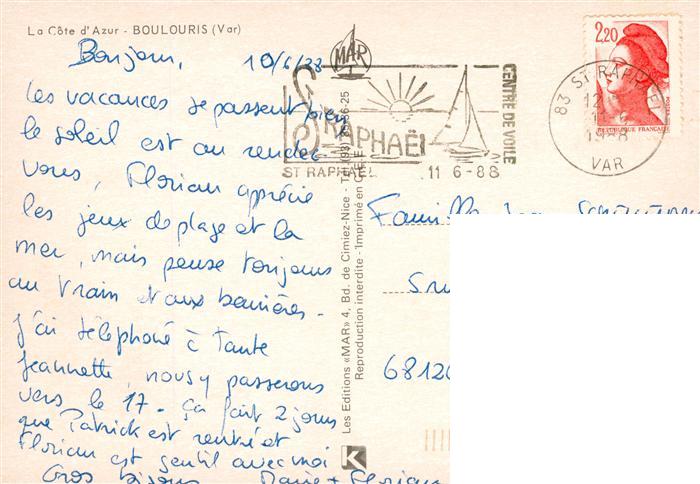 La Côte d'Azur - BOULOURIS (Var)
Bonjour, 10/6/88
Les vacances se passent bien
le soleil est au rendez
vous, Florian apprécie
les jeux de plage et la
mer, mais pense toujours
au train et aux barrières.
J'ai téléphoné à Tante
Jeannette, nous y passerons
vers le 17. Ça fait 2 jours
que Patrick est rentré et
Florian est gentil avec moi
Gros bisous Marie + Florian
MAR
ST RAPHAËL
CENTRE DE VOILE
ST RAPHAEL 11 6-88
2,20
REPUBLIQUE FRANCAISE
83 ST RAPHAEL
1988
VAR
Les Editions «MAR» 4, Bd. de Cimiez-Nice
Reproduction interdite - Imprimé en C.E.E.
Famille
6812
K